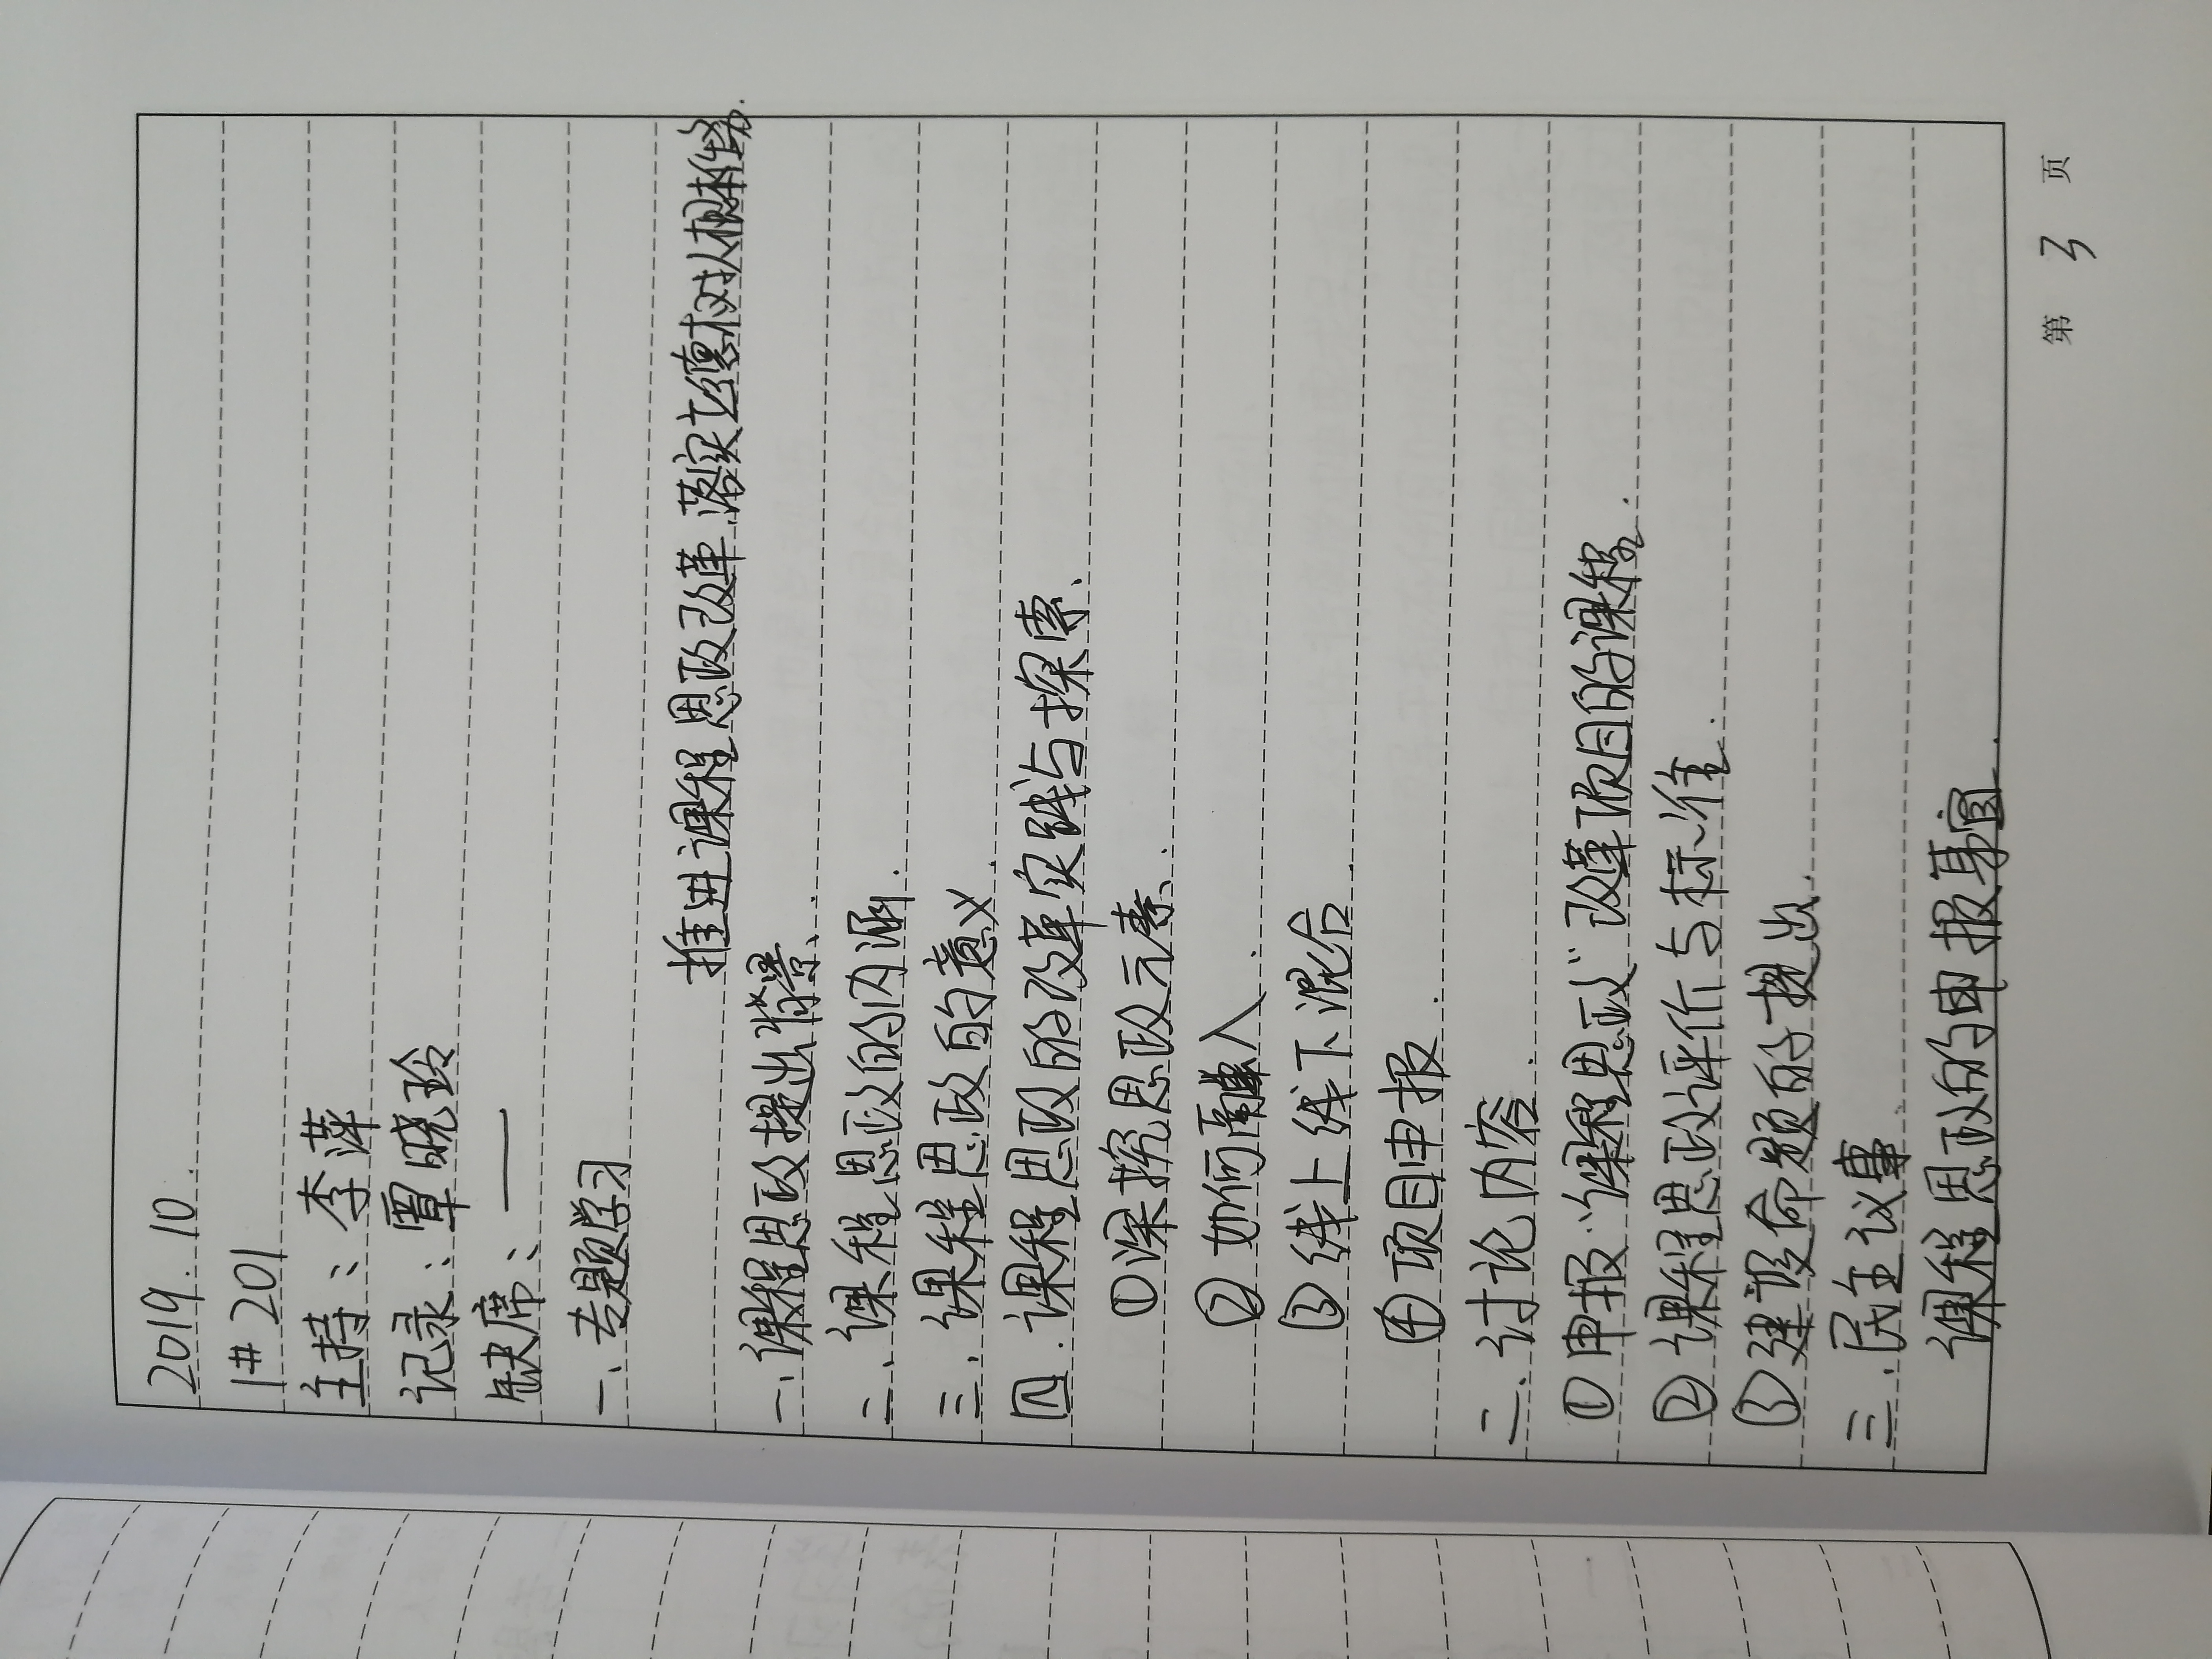 2019.10.
1# 201
主持：李萍
记录：覃晓玲
缺席：——
一、专题学习
推进课程思政改革.落实立德树人根本任务.
一、课程思政提出背景、
二、课程思政的内涵.
三、课程思政的意义.
四.课程思政的改革实践与探索、
①深挖思政元素、
②如何融入.
③线上线下混合.
④项目申报.
二.讨论内容.
①申报“课程思政”改革项目的课程.
②课程思政评价与标准.
③建设命题的提出.
三.民主议事.
课程思政的申报事宜.
第 3 页